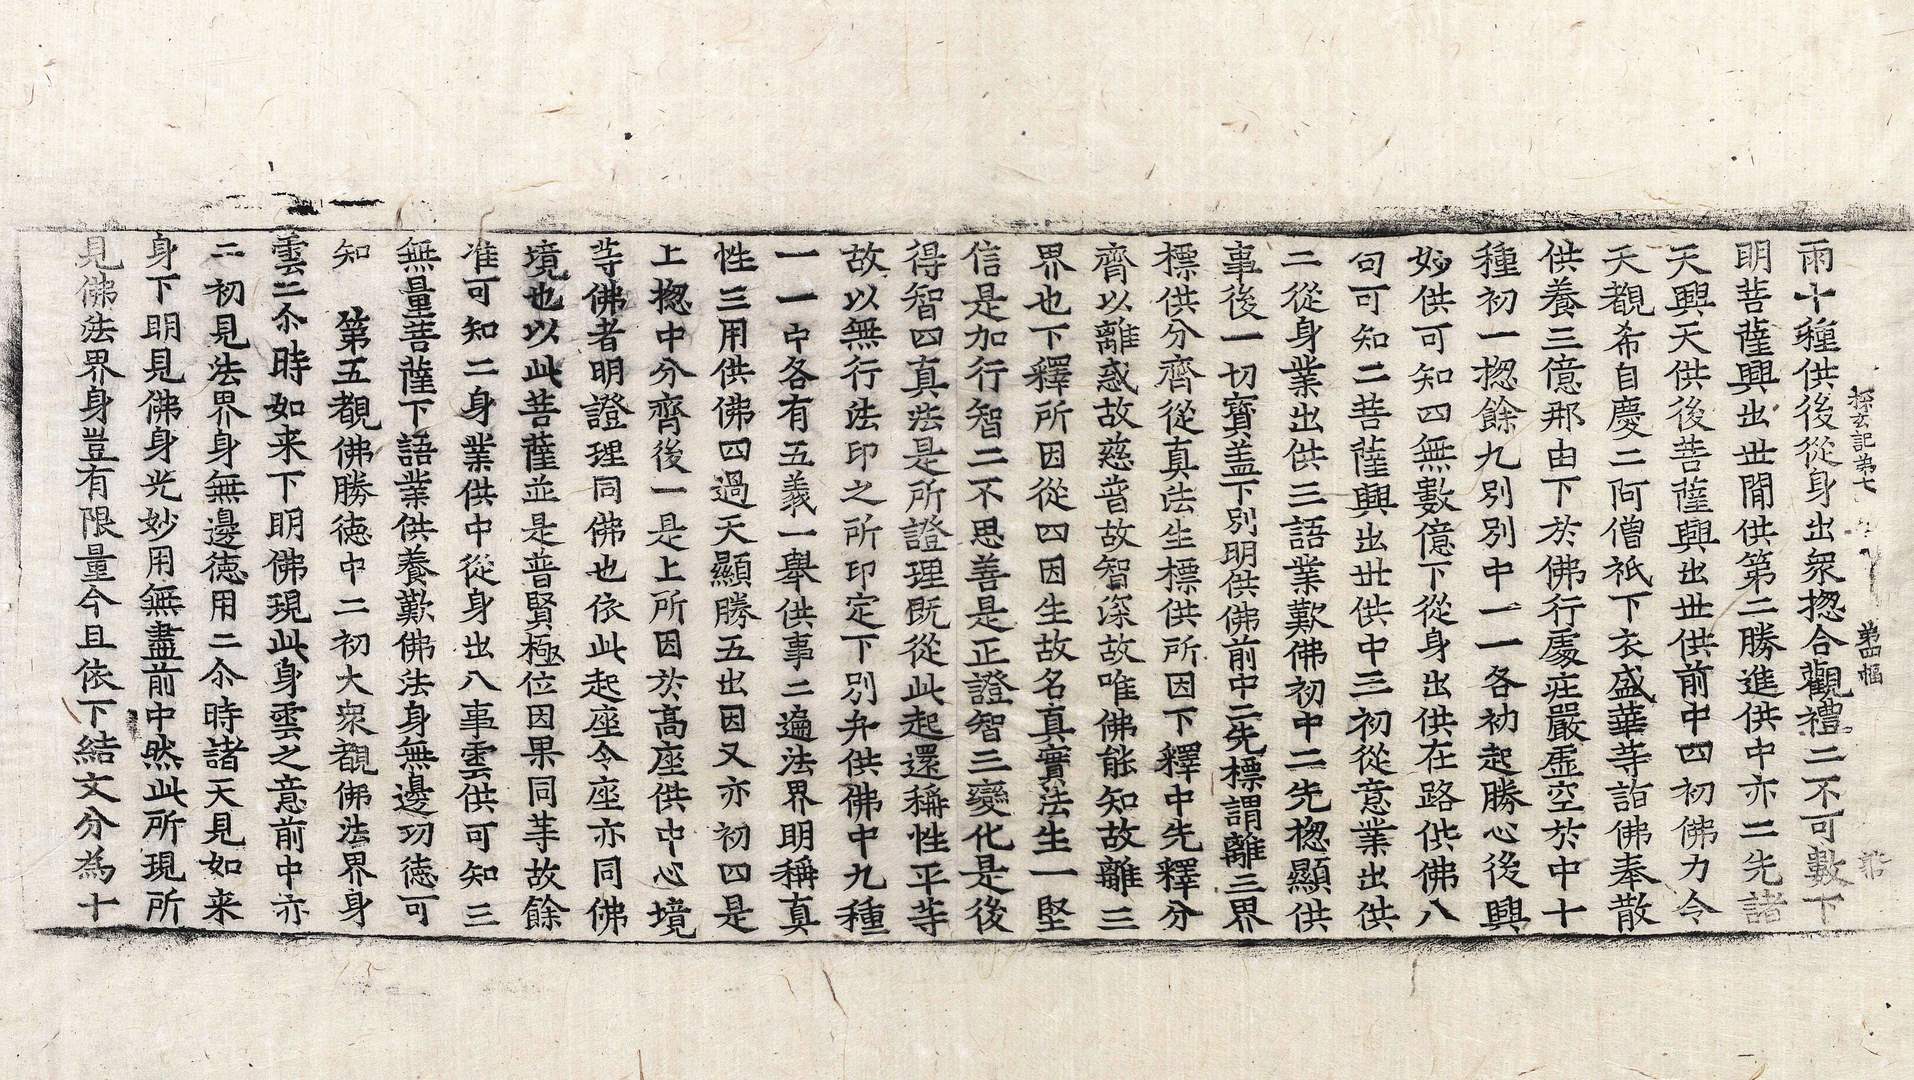 探玄記第七　第四幅
雨十種供後從身出衆揔合觀禮二不可數下
明菩薩興出世閒供第二勝進供中亦二先諸
天興天供後菩薩興出世供前中四初佛力令
天覩希自慶二阿僧祇下衣盛華䓁詣佛奉散
供養三億那由下於佛行處庄嚴虛空於中十
種初一揔餘九別別中一一各初起勝心後興
妙供可知四無數億下從身出供在路供佛八
句可知二菩薩興出世供中三初從意業出供
二從身業出供三語業歎佛初中二先揔顯供
事後一切寶盖下別明供佛前中二先標謂離三界
標供分齊從真法生標供所因下釋中先釋分
齊以離惑故慈普故智深故唯佛能知故離三
界也下釋所因從四因生故名真實法生一堅
信是加行智二不思善是正證智三變化是後
得智四真法是所證理既從此起還稱性平䓁
故以無行法印之所印定下別弁供佛中九種
一一中各有五義一舉供事二遍法界明稱真
性三用供佛四過天顯勝五出因又亦初四是
上揔中分齊後一是上所因於高座供中心境
䓁佛者明證理同佛也依此起座令座亦同佛
境也以此菩薩並是普賢極位因果同䓁故餘
准可知二身業供中從身出八事雲供可知三
無量菩薩下語業供養歎佛法身無邊功徳可
知　第五覩佛勝徳中二初大衆覩佛法界身
雲二尒時如来下明佛現此身雲之意前中亦
二初見法界身無邊徳用二尒時諸天見如来
身下明見佛身光妙用無盡前中然此所現所
見佛法界身豈有限量今且依下結文分為十